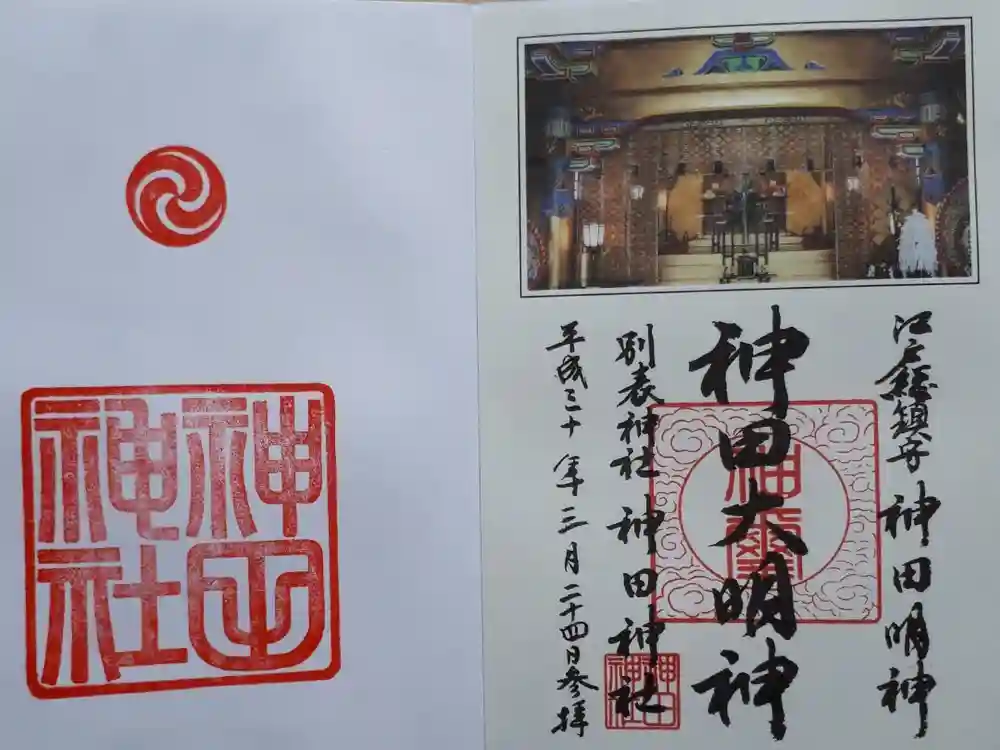 江戸総鎮守 神田明神
神田大明神
神璽
別表神社 神田神社
神田神社
平成三十年三月二十四日参拝
神田
神社